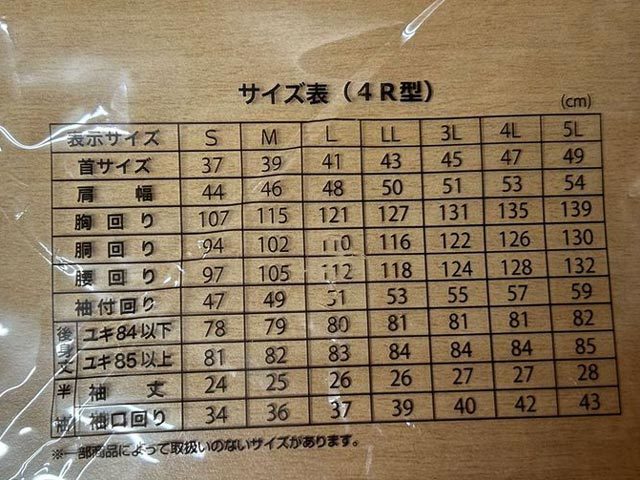 サイズ表（4R型）
(cm)
表示サイズ S M L LL 3L 4L 5L
首サイズ 37 39 41 43 45 47 49
肩幅 44 46 48 50 51 53 54
胸回り 107 115 121 127 131 135 139
胴回り 94 102 110 116 122 126 130
腰回り 97 105 112 118 124 128 132
袖付回り 47 49 51 53 55 57 59
後身丈 ユキ84以下 78 79 80 81 81 81 82
ユキ85以上 81 82 83 84 84 84 85
半袖 袖丈 24 25 26 26 27 27 28
袖口回り 34 36 37 39 40 42 43
※一部商品によって取扱いのないサイズがあります。